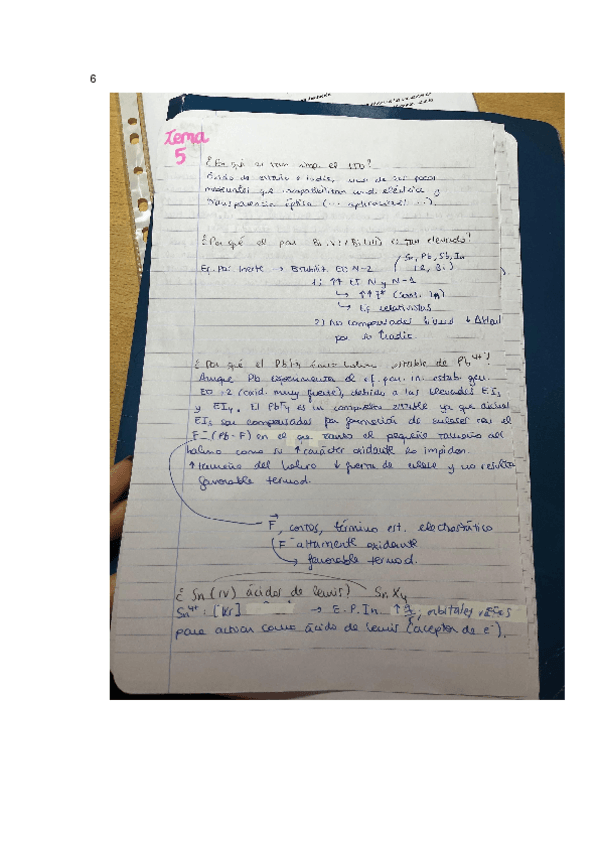 6
Tema
5
¿Por qué es tan imp. el ITO?
Óxido de estaño e indio, uno de los pocos
materiales que compatibilizan cond. eléctrica y
transparencia óptica (... aplicaciones ...).
¿Por qué el par Bi(V)/Bi(III) es tan elevado?
Ef. Par Inerte → Estabiliz. EO N-2 (Sn, Pb, Sb, In
Bi)
1) ↑↑ EI N y N-1
↑↑ Z*
Ef. relativistas
2) No compensadas
por
¿Por qué el PbF4 único haluro estable de Pb4+?
Aunque Pb experimenta el ef. par. in. estab. gen.
EO -2 (oxid. muy fuerte), debido a las elevadas EI3
y EI4. El PbF4 es un compuesto estable ya que dichas
EIs son compensadas por formación de enlaces con el
F- (Pb-F) en el que tanto el pequeño tamaño del
haluro como su ↑ carácter oxidante lo impiden.
↑ tamaño del haluro ↓ fuerza de enlace y no resulta
favorable termod.
F, cortos, término est. electrostático
F- altamente oxidante
→ favorable termod.
¿Sn(IV) ácidos de Lewis? SnX4
Sn4+: [Kr] → E.P.In. ↑ orbitales
para actuar como ácido de Lewis (aceptor de e-).